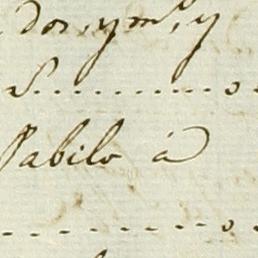 dos, y m.ᵉ, y
S..............o.
Pabilo à